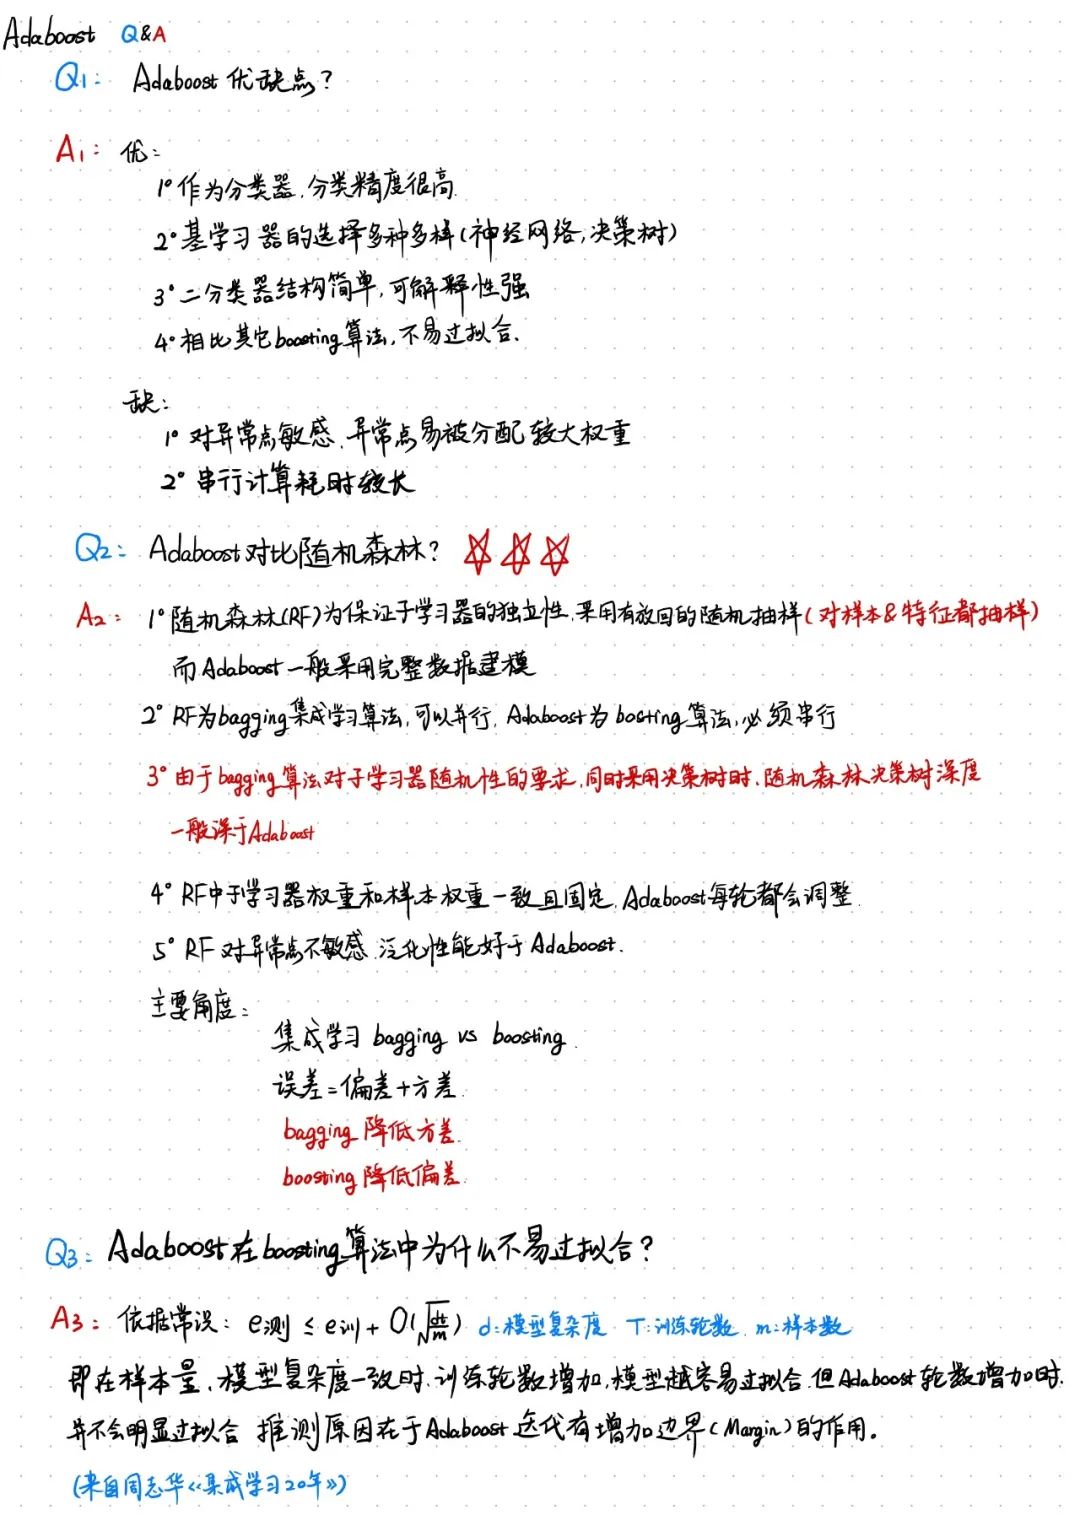 Adaboost Q&A
Q1: Adaboost 优缺点?
A1: 优:
1° 作为分类器,分类精度很高.
2° 基学习器的选择多种多样(神经网络,决策树)
3° 二分类器结构简单,可解释性强
4° 相比其它boosting算法,不易过拟合.
缺:
1° 对异常点敏感,异常点易被分配较大权重
2° 串行计算耗时较长
Q2: Adaboost对比随机森林? ☆☆☆
A2: 1° 随机森林(RF)为保证子学习器的独立性,采用有放回的随机抽样(对样本&特征都抽样)
而Adaboost一般采用完整数据建模
2° RF为bagging集成学习算法,可以并行, Adaboost为bosting算法,必须串行
3° 由于bagging算法对子学习器随机性的要求,同时采用决策树时,随机森林决策树深度
一般深于Adaboost
4° RF中子学习器权重和样本权重一致且固定,Adaboost每轮都会调整.
5° RF对异常点不敏感,泛化性能好于Adaboost.
主要角度:
集成学习 bagging vs boosting.
误差=偏差+方差.
bagging 降低方差.
boosting 降低偏差.
Q3: Adaboost在boosting算法中为什么不易过拟合?
A3: 依据常识: e测 ≤ e训 + O(√(dT/m)) d:模型复杂度 T:训练轮数 m:样本数
即在样本量,模型复杂度一致时,训练轮数增加,模型越容易过拟合,但Adaboost轮数增加时,
并不会明显过拟合 推测原因在于Adaboost 迭代有增加边界(Margin)的作用。
(来自周志华《集成学习20年》)